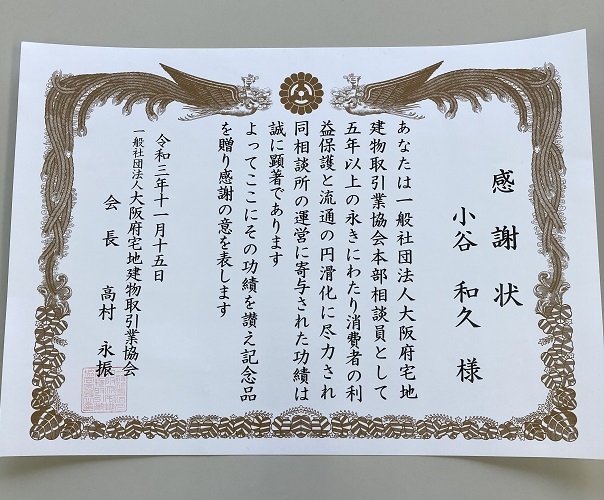 感謝状
小谷 和久 様
あなたは一般社団法人大阪府宅地
建物取引業協会本部相談員として
五年以上の永きにわたり消費者の利
益保護と流通の円滑化に尽力され
同相談所の運営に寄与された功績は
誠に顕著であります
よってここにその功績を讃え記念品
を贈り感謝の意を表します
令和三年十一月十五日
一般社団法人大阪府宅地建物取引業協会
会長 高村 永振